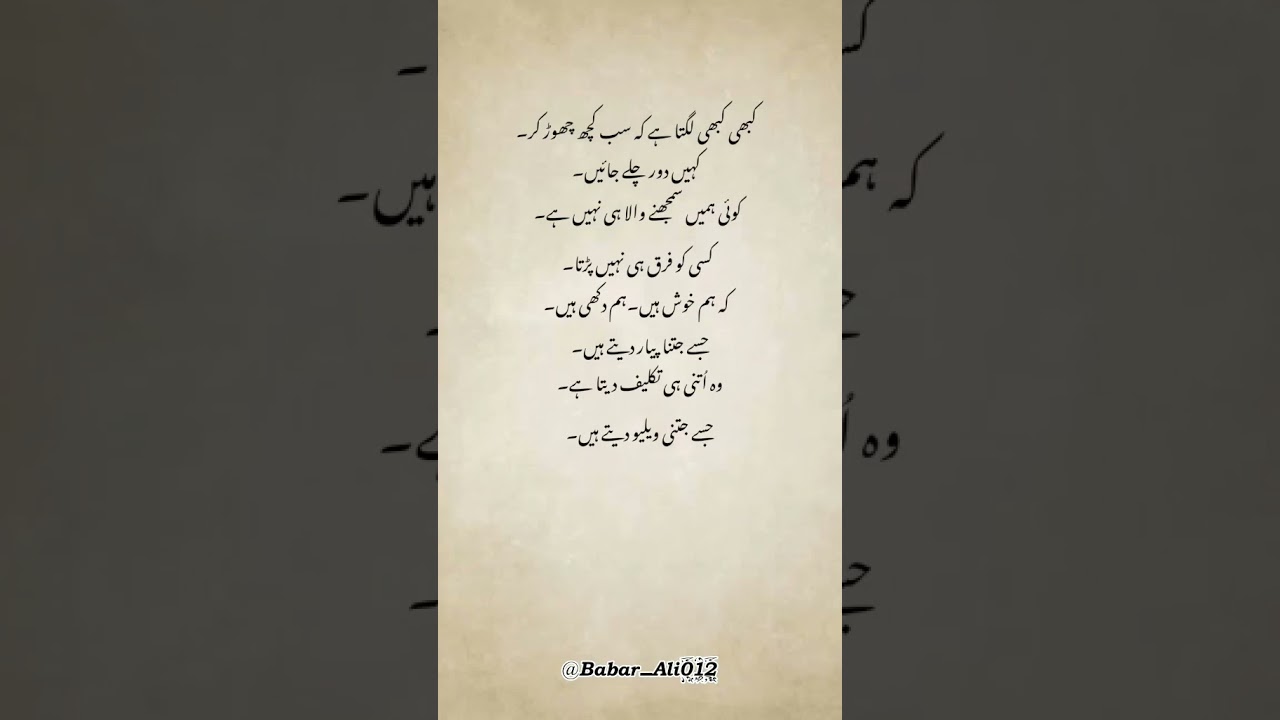 کبھی کبھی لگتا ہے کہ سب کچھ چھوڑ کر۔
کہیں دور چلے جائیں۔
کوئی ہمیں سمجھنے والا ہی نہیں ہے۔
کسی کو فرق ہی نہیں پڑتا۔
کہ ہم خوش ہیں۔ ہم دکھی ہیں۔
جسے جتنا پیار دیتے ہیں۔
وہ اُتنی ہی تکلیف دیتا ہے۔
جسے جتنی ویلیو دیتے ہیں۔
@Babar_Ali012